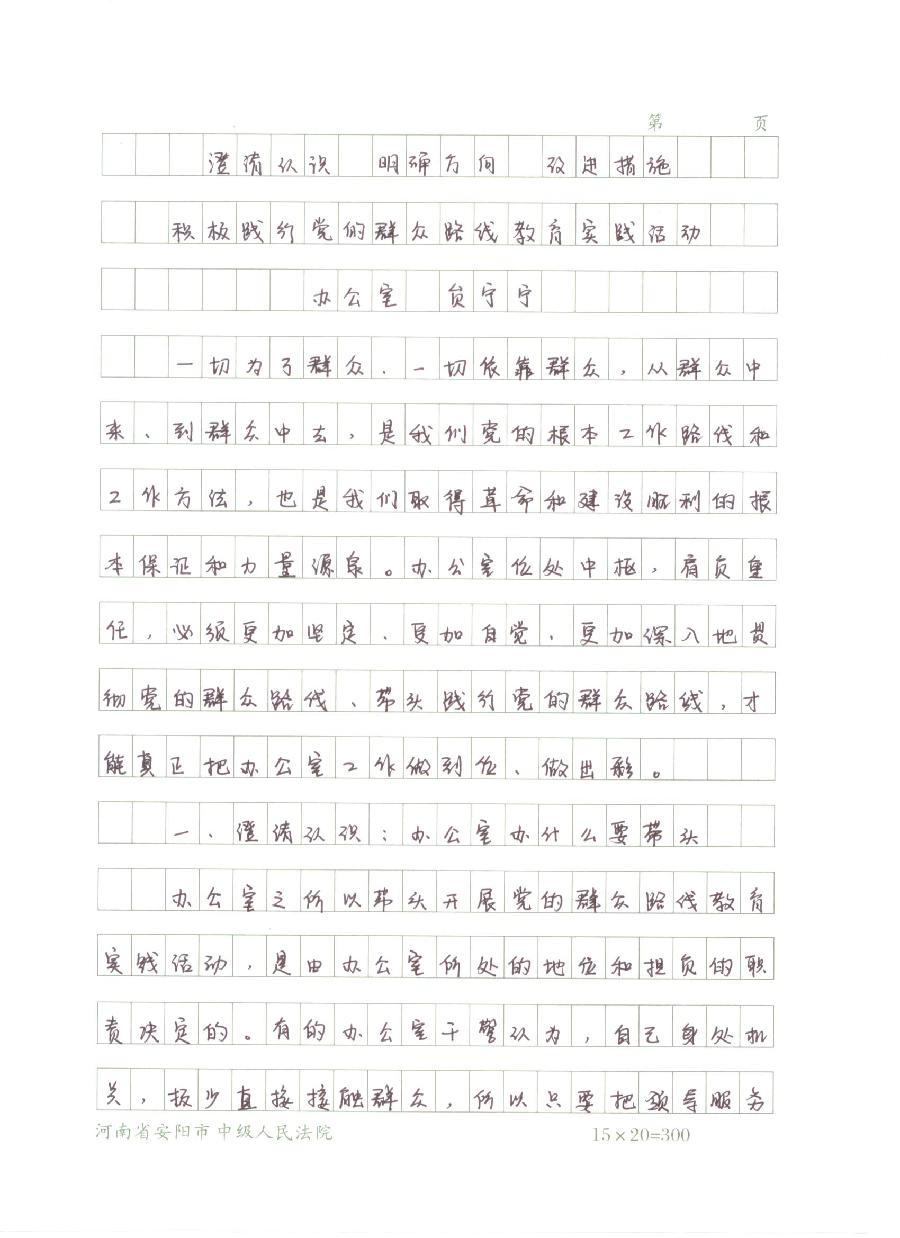 第 页
澄清认识 明确方向 改进措施
积极践行党的群众路线教育实践活动
办公室 贠宁宁
一切为了群众、一切依靠群众，从群众中
来、到群众中去，是我们党的根本工作路线和
工作方法，也是我们取得革命和建设胜利的根
本保证和力量源泉。办公室位处中枢，肩负重
任，必须更加坚定、更加自觉、更加深入地贯
彻党的群众路线、带头践行党的群众路线，才
能真正把办公室工作做到位、做出彩。
一、澄清认识：办公室办什么要带头
办公室之所以带头开展党的群众路线教育
实践活动，是由办公室所处的地位和担负的职
责决定的。有的办公室干警认为，自己身处机
关，极少直接接触群众，所以只要把领导服务
河南省安阳市中级人民法院 15×20=300